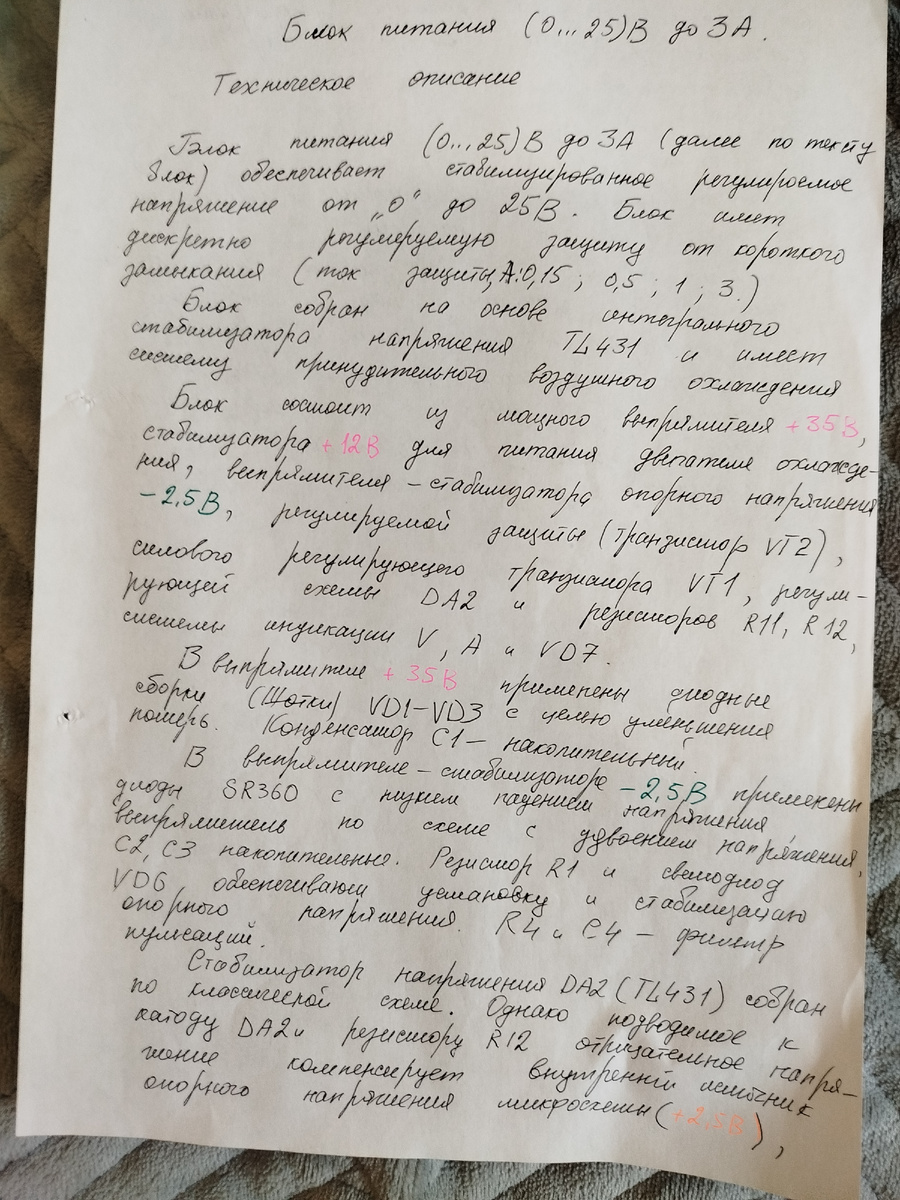 Блок питания (0...25)В до 3А.
Техническое описание
Блок питания (0...25)В до 3А (далее по тексту
блок) обеспечивает стабилизированное регулируемое
напряжение от „0" до 25В. Блок имеет
дискретно регулируемую защиту от короткого
замыкания (ток защиты, А:0,15; 0,5; 1; 3.)
Блок собран на основе интегрального
стабилизатора напряжения TL431 и имеет
систему принудительного воздушного охлаждения
Блок состоит из мощного выпрямителя +35В,
стабилизатора +12В для питания двигателя охлажде-
ния, выпрямителя-стабилизатора опорного напряжения
-2,5В, регулируемой защиты (транзистор VT2),
силового регулирующего транзистора VT1, регули-
рующей схемы DA2 и резисторов R11, R12,
системы индикации V, A и VD7.
В выпрямителе +35В применены диодные
сборки (Шотки) VD1-VD3 с целью уменьшения
потерь. Конденсатор C1 - накопительный.
В выпрямителе-стабилизаторе -2,5В применены
диоды SR360 с низким падением напряжения
выпрямитель по схеме с удвоением напряжения,
C2, C3 накопительные. Резистор R1 и светодиод
VD6 обеспечивают установку и стабилизацию
опорного напряжения. R4 и C4 - фильтр
пульсаций.
Стабилизатор напряжения DA2 (TL431) собран
по классической схеме. Однако подводимое к
катоду DA2 и резистору R12 отрицательное напря-
жение компенсирует внутренний источник
опорного напряжения микросхемы (+2,5В),